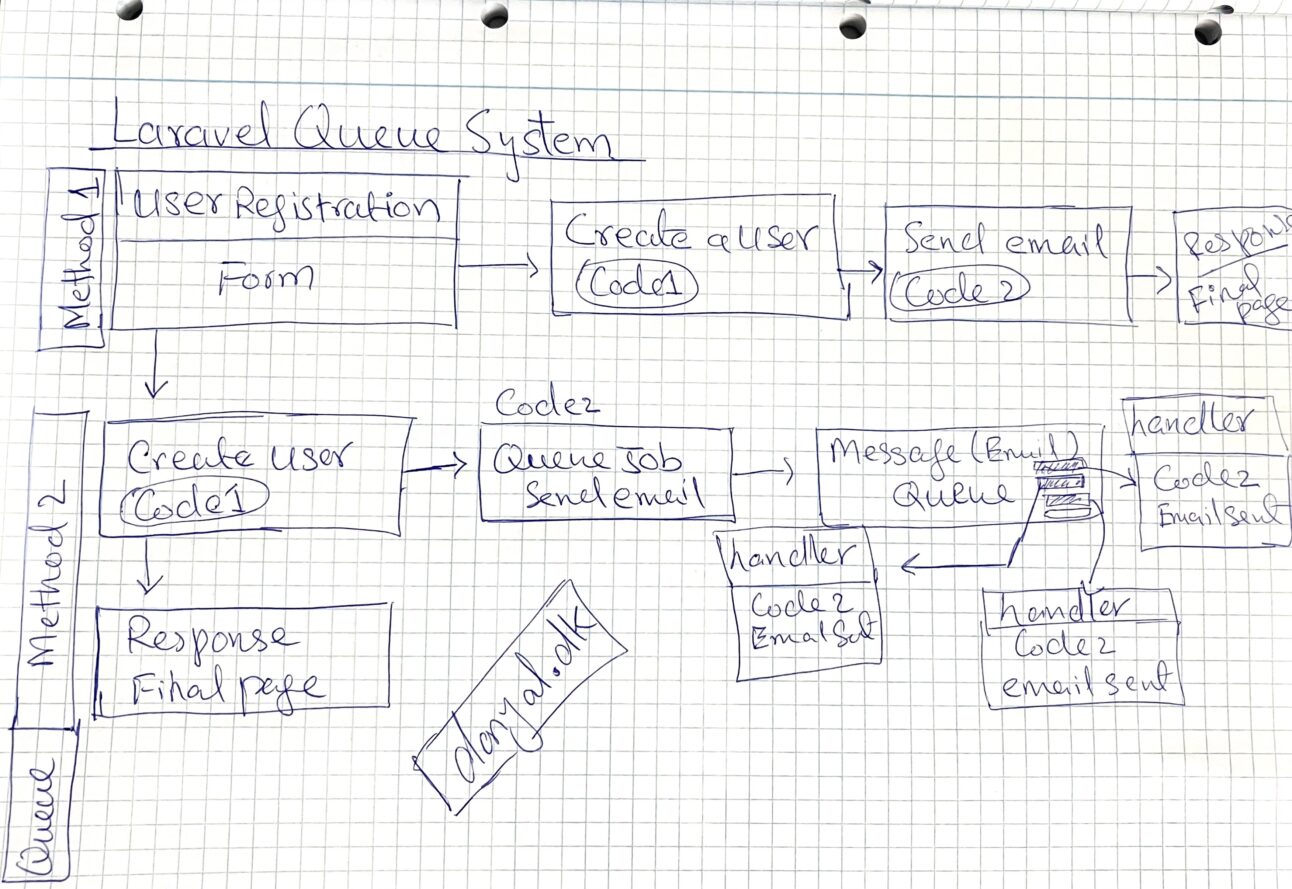 Laravel Queue System
Method 1
User Registration
Form
Create a user
Code1
Send email
Code 2
Respons
Final
page
Method 2
Queue
Create user
Code1
Response
Final page
Code2
Queue Job
Send email
Message (Email)
Queue
handler
Code2
Email sent
handler
Code 2
Email
handler
Code2
email sent
danyal.dk